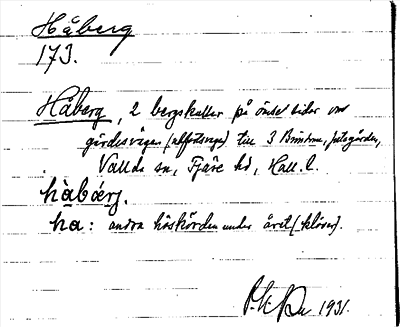 Håberg
173.
Håberg, 2 bergskullar på ömse sidor om
gärdesvägen (utfartsvägen) till 3 Brunarne,
Vallda sn, Fjäre hd, Hall. l.
hàbǽrj.
ha: andra höskörden under året (klöver).
1931.